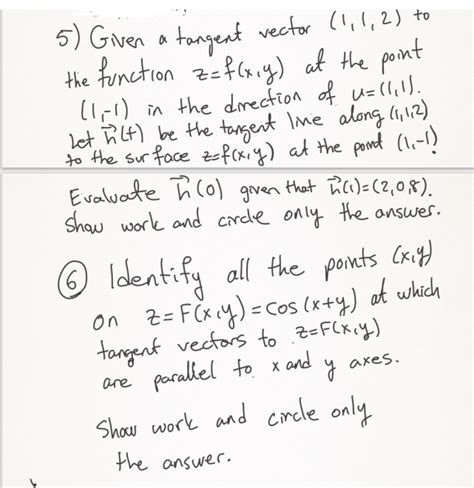 5) Given a tangent vector (1,1,2) to
the function z=f(x,y) at the point
(1,-1) in the direction of u=(1,1).
Let h⃗(t) be the tangent line along (1,1,2)
to the surface z=f(x,y) at the point (1,-1)
Evaluate h⃗(0) given that h⃗(1)=(2,0,8).
Show work and circle only the answer.
⑥ Identify all the points (x,y)
on z=F(x,y)=cos(x+y) at which
tangent vectors to z=F(x,y)
are parallel to x and y axes.
Show work and circle only
the answer.